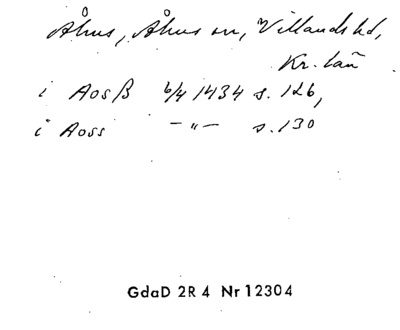 Åhus, Åhus sn, Villands hd,
Kr. län
i Aosß 6/4 1434 s. 126,
i Aoss —"— s. 130
GdaD 2R 4 Nr 12304